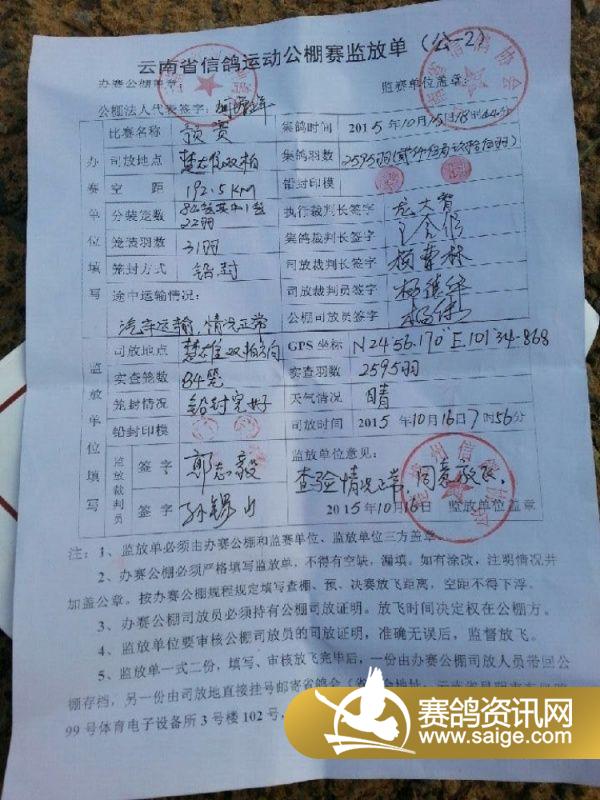 云南省信鸽运动公棚赛监放单 (公-2)
办赛公棚盖章： 监赛单位盖章：
公棚法人代表签字：
办赛单位填写
比赛名称 预赛 集鸽时间 2015年10月15日18时44分
司放地点 楚雄双柏 集鸽羽数 2595羽
空距 192.5KM 铅封印模
分装笼数 执行裁判长签字
集鸽裁判长签字
笼装羽数 31羽 司放裁判长签字
笼封方式 铅封 司放裁判员签字
途中运输情况： 公棚司放员签字
汽车运输,情况正常
监放单位填写
司放地点 楚雄双柏方向 GPS坐标 N24 56.170" E101°34-868
实查笼数 84笼 实查羽数 2595羽
笼封情况 铅封完好 天气情况 晴
铅封印模 司放时间 2015年10月16日7时56分
监放裁判员 签字 郭志毅 监放单位意见：
查验情况正常,同意放飞.
签字 孙锡山 2015年10月16日 监放单位盖章
注：1、监放单必须由办赛公棚和监赛单位、监放单位三方盖章。
2、办赛公棚必须严格填写监放单，不得有空缺，漏填。如有涂改，注明情况并
加盖公章。按办赛公棚规程规定填写查棚、预、决赛放飞距离，空距不得下浮。
3、办赛公棚司放员必须持有公棚司放证明。放飞时间决定权在公棚方。
4、监放单位要审核公棚司放员的司放证明，准确无误后，监督放飞。
5、监放单一式二份，填写、审核放飞完毕后，一份由办赛公棚司放人员带回公
棚存档，另一份由司放地直接挂号邮寄省鸽会
99号体育电子设备所3号楼102号，
赛鸽资讯网
www.saige.com